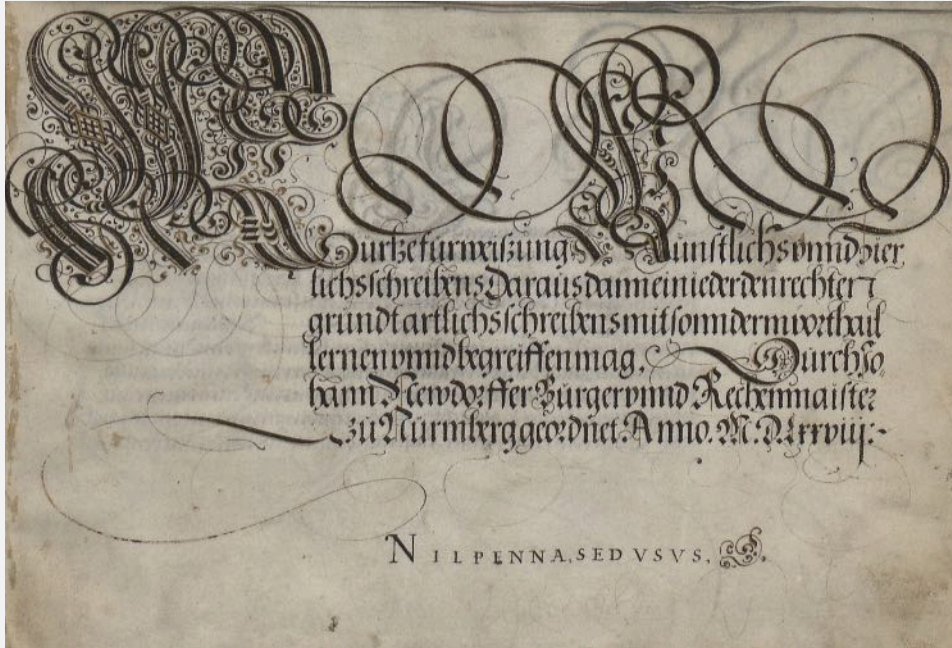 Kurtze fürweisung Künstlichs vnnd zier
lichs schreibens Daraus dann ein ieder den rechten
grundt artlichs schreibens mit sonnderm vorthail
lernen vnnd begreiffen mag. Durch Jo
hann Newdorffer Burger vnnd Rechenmaister
zu Nürmberg geordnet. Anno. M. D. Lxxviij:-
NIL PENNA, SED VSVS.